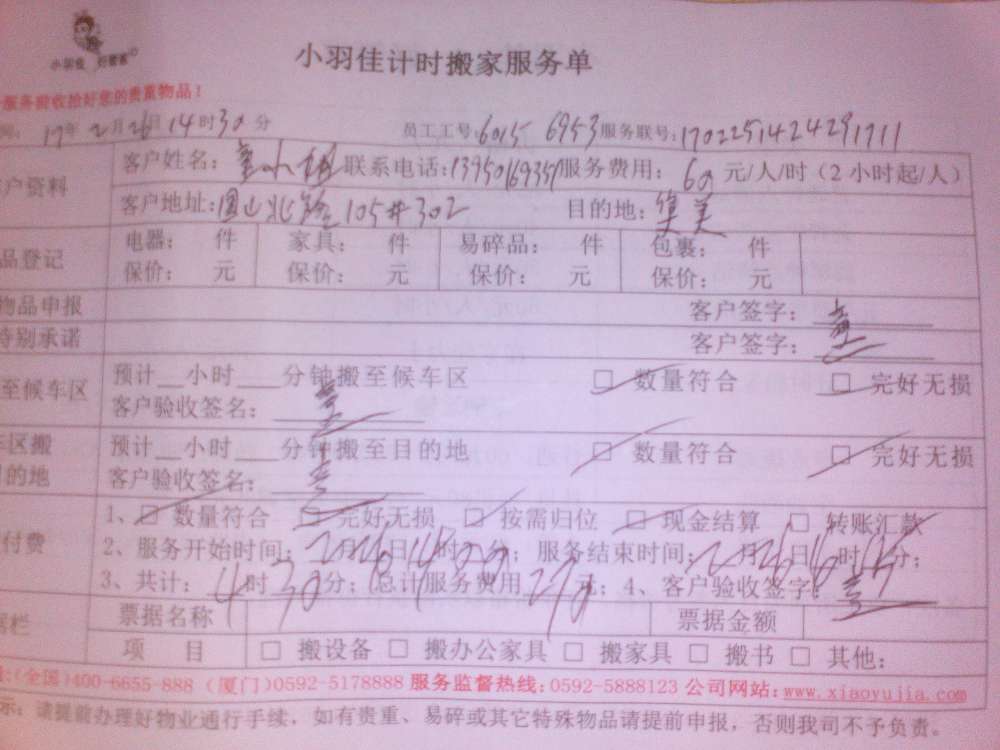 小羽佳 好管家
小羽佳计时搬家服务单
服务前收拾好您的贵重物品！
17年2月26日14时30分 员工工号:6015 6953 服务联号:1702251424291711
客户资料 客户姓名: 联系电话:13950169357 服务费用: 60 元/人/时（2小时起/人）
客户地址: 105# 302 目的地: 集美
品登记 电器: 件 家具: 件 易碎品: 件 包裹: 件
保价: 元 保价: 元 保价: 元 保价: 元
物品申报 客户签字:
特别承诺 客户签字:
至候车区 预计__小时___分钟搬至候车区 □ 数量符合 □ 完好无损
客户验收签名:
车区搬 预计__小时___分钟搬至目的地 □ 数量符合 □ 完好无损
目的地 客户验收签名:
1、□ 数量符合 □ 完好无损 □ 按需归位 □ 现金结算 □ 转账汇款
付费 2、服务开始时间: 2月26日14时00分; 服务结束时间: 2月26日16时15分;
3、共计: 4时30分; 总计服务费用270元; 4、客户验收签字:
据栏 票据名称 票据金额
项 目 □ 搬设备 □ 搬办公家具 □ 搬家具 □ 搬书 □ 其他:
:(全国)400-6655-888 (厦门)0592-5178888 服务监督热线:0592-5888123 公司网站:www.xiaoyujia.com
示: 请提前办理好物业通行手续，如有贵重、易碎或其它特殊物品请提前申报，否则我司不予负责。